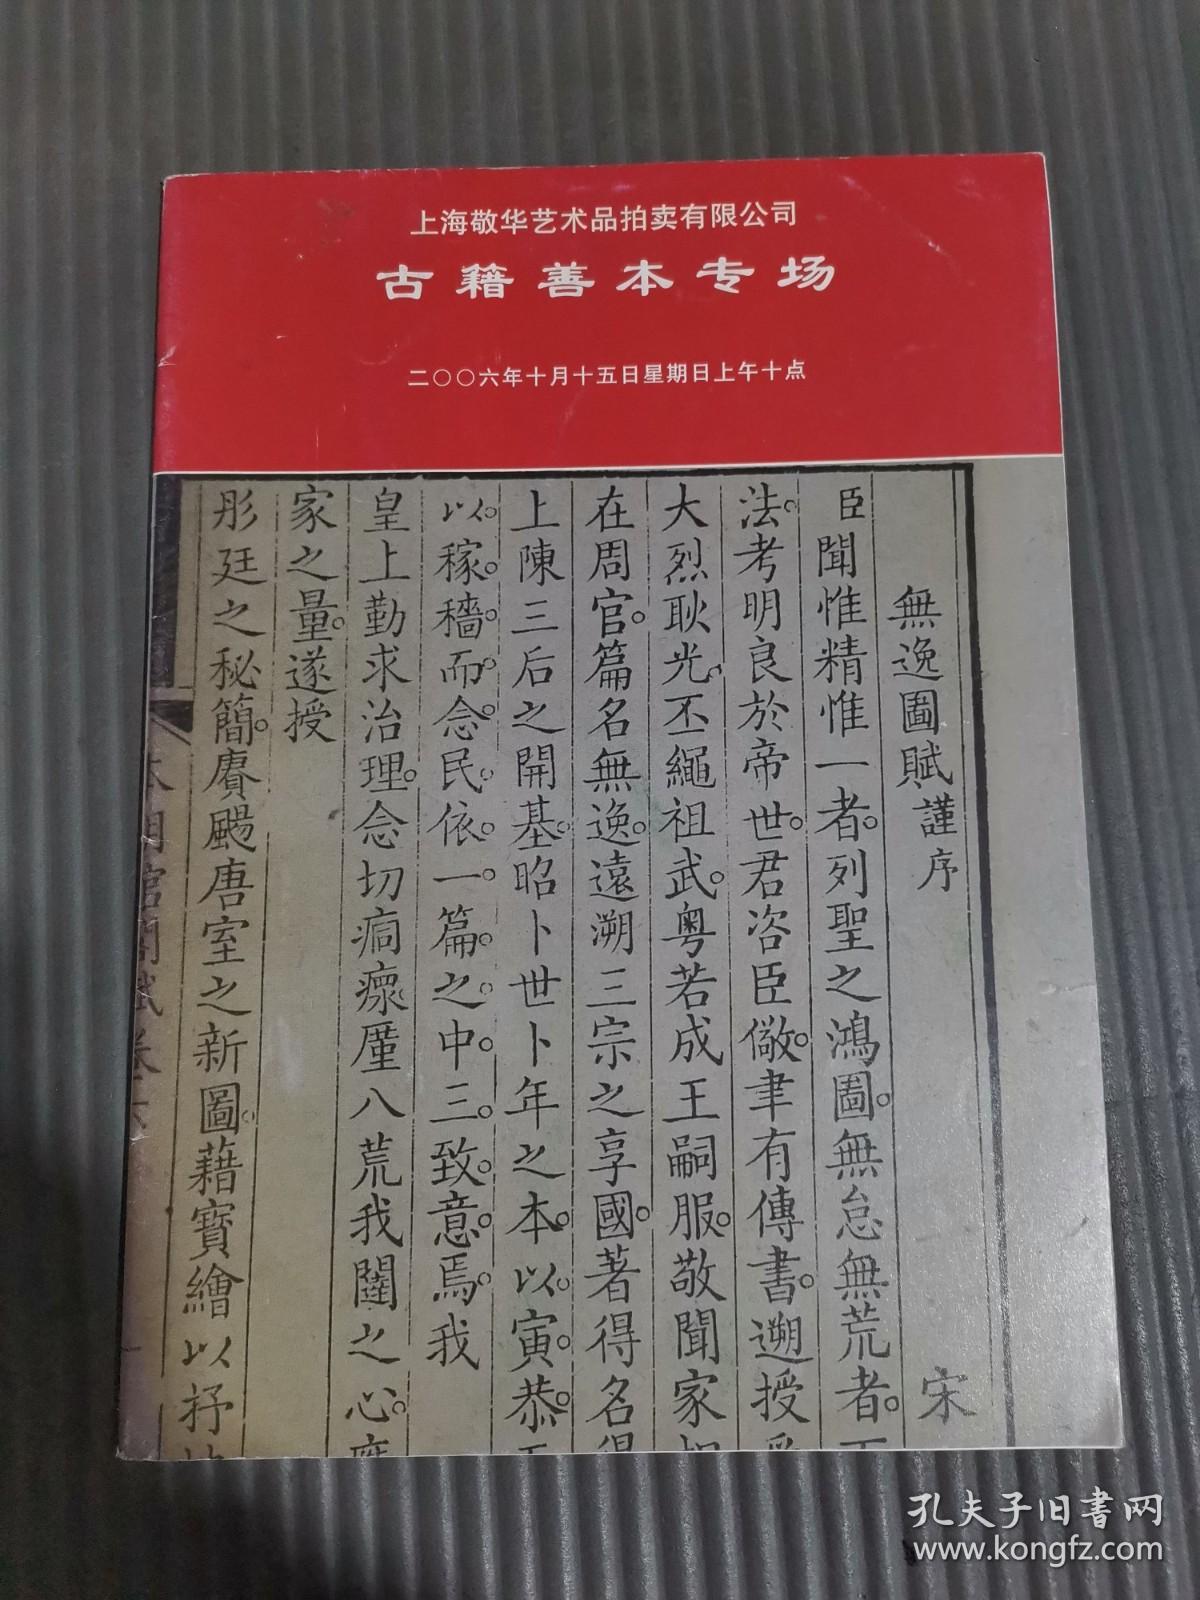 上海敬华艺术品拍卖有限公司
古籍善本专场
二〇〇六年十月十五日星期日上午十点
無逸圖賦謹序 宋
臣聞惟精惟一者。列聖之鴻圖。無怠無荒者。
法。考明良於帝世。君咨臣儆。聿有傳書。遡授
大烈耿光。丕繩祖武。粤若成王嗣服。敬聞家
在周官。篇名無逸。遠溯三宗之享國。著得名
上陳三后之開基。昭卜世卜年之本。以寅恭。
以稼。穡。而念民依。一篇之中。三致意焉。我
皇上勤求治理。念切痌瘝。廑八荒我闥之心。
家之量。遂授
彤廷之秘簡。賡颺唐室之新圖。藉寶繪以抒
孔夫子旧书网
www.kongfz.com